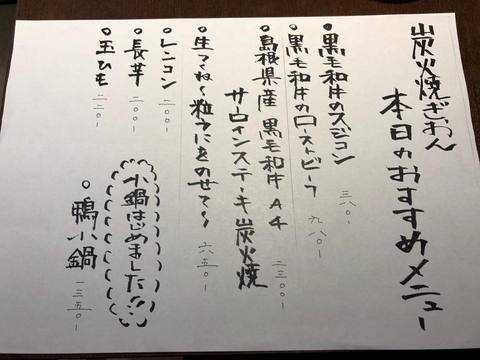 炭火焼ぎおん
本日のおすすめメニュー
○黒毛和牛のスジコン 三八〇-
○黒毛和牛のローストビーフ 九八〇-
○島根県産 黒毛和牛A4
サロインステーキ炭火焼 二三〇〇-
○生つくね〜粒うにをのせて〜 六五〇-
○レンコン 二〇〇-
○長芋 二〇〇-
○玉ひも 二二〇-
小鍋はじめました!!
○鴨小鍋 一三五〇-